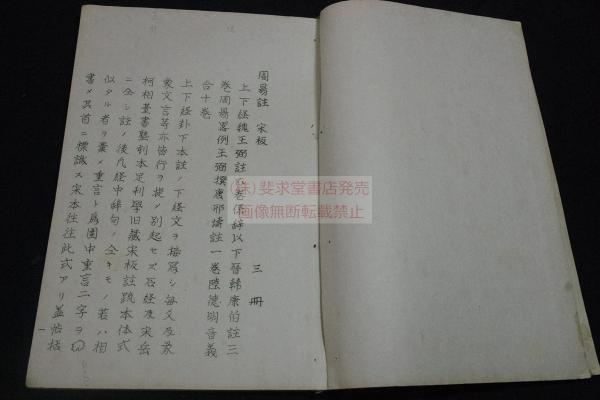 周易註 宋板
三冊
上下経魏王弼註六巻係辞以下晉韓康伯註三
巻周易畧例王弼撰唐邢璹註一巻陸徳明音義
合十巻
上下経卦下本註ノ下経文ヲ描写シ毎爻及彖
象文言等亦皆行ヲ提ノ別起セズ石経及宋岳
柯相臺書塾刻本足利學旧蔵宋板註疏本体式
ニ仝シ註ノ後凡経中辞句ノ仝キモノ若ハ相
似タル者ヲ彙メ重言ト爲圏中重言二字ヲ
書メ其首ニ標識ス宋本往往此式アリ蓋帖括
(株)斐求堂書店発売
画像無断転載禁止